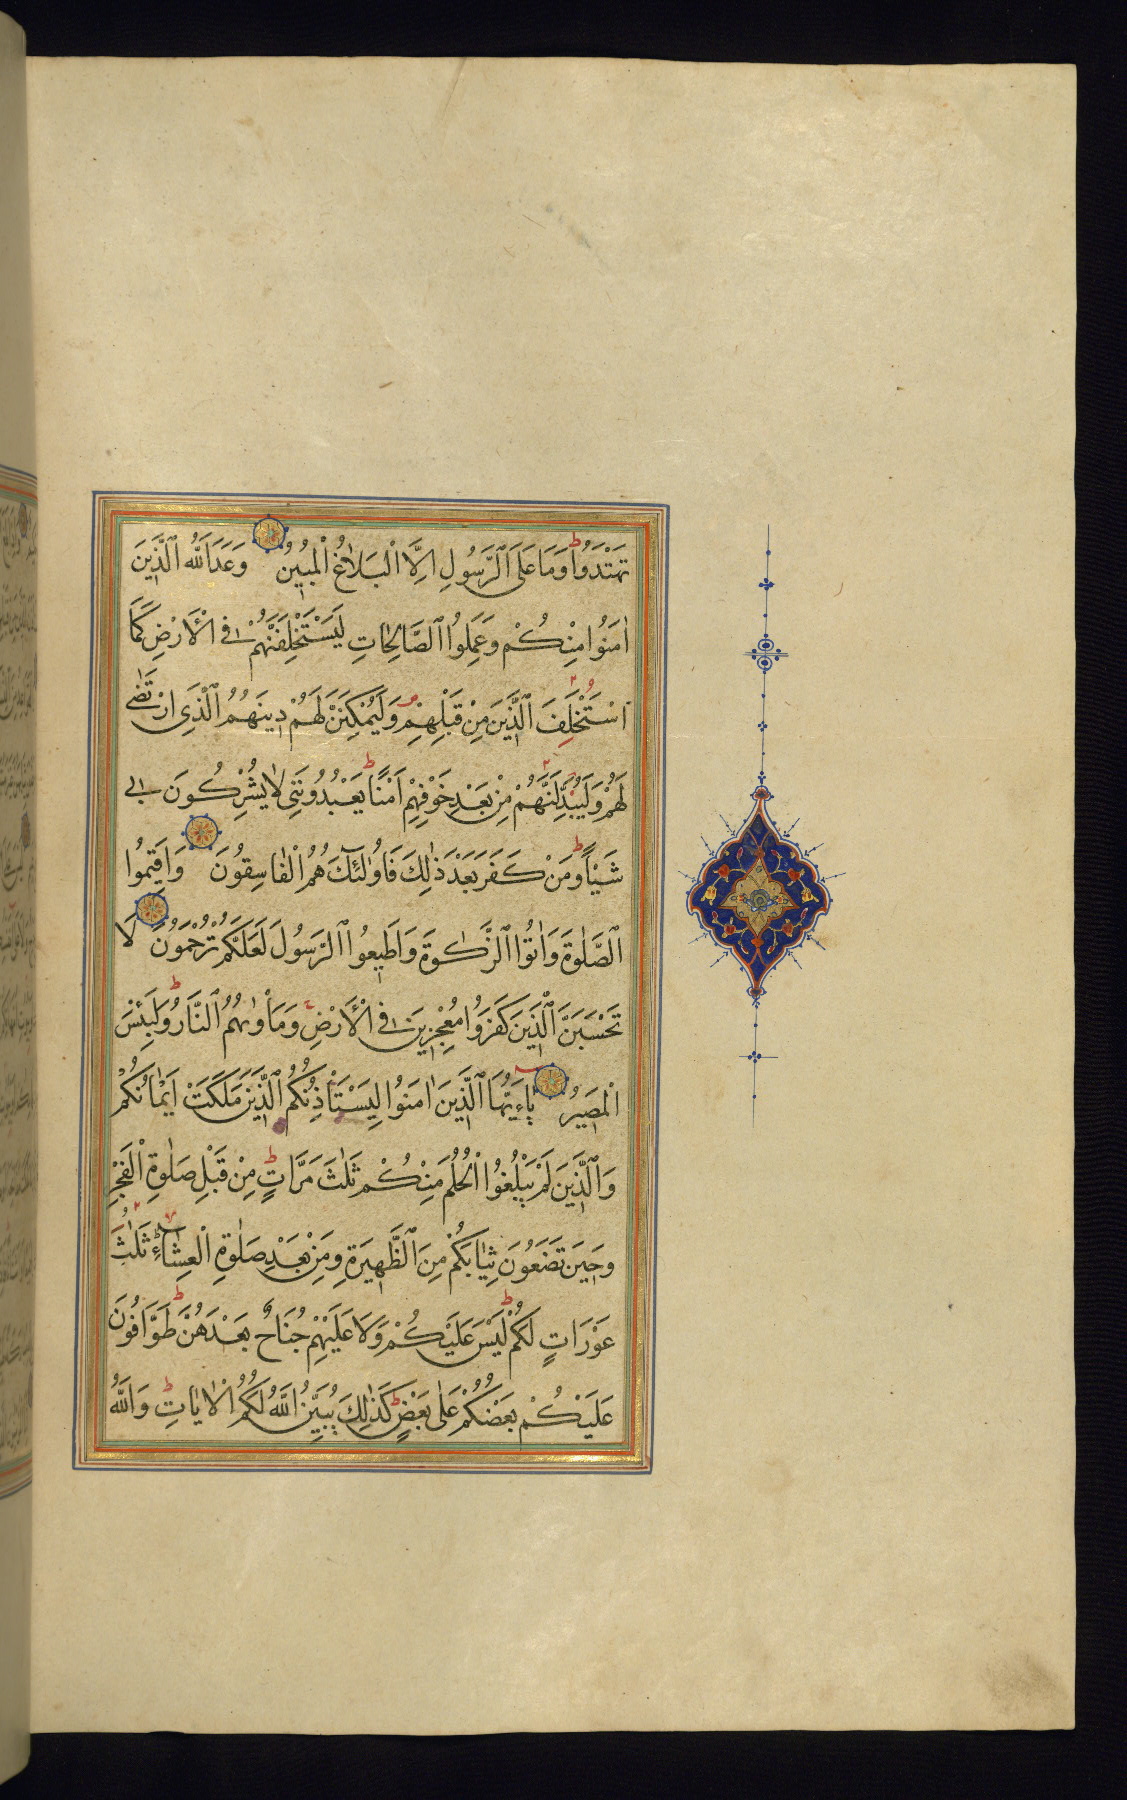 تَهْتَدُوا وَمَا عَلَى ٱلرَّسُولِ اِلَّا الْبَلَاغُ الْمُبِينُ وَعَدَ اللّٰهُ ٱلَّذِينَ
اٰمَنُوا مِنْكُمْ وَعَمِلُوا ٱلصَّالِحَاتِ لَيَسْتَخْلِفَنَّهُمْ فِى الْاَرْضِ كَمَا
اسْتَخْلَفَ ٱلَّذِينَ مِنْ قَبْلِهِمْ وَلَيُمَكِّنَنَّ لَهُمْ دِينَهُمُ ٱلَّذِى ارْتَضٰى
لَهُمْ وَلَيُبَدِّلَنَّهُمْ مِنْ بَعْدِ خَوْفِهِمْ اَمْنًا يَعْبُدُونَنِى لَا يُشْرِكُونَ بِى
شَيْاً وَمَنْ كَفَرَ بَعْدَ ذٰلِكَ فَاُولٰئِكَ هُمُ الْفَاسِقُونَ وَاَقِيمُوا
ٱلصَّلٰوةَ وَاٰتُوا ٱلزَّكٰوةَ وَاَطِيعُوا ٱلرَّسُولَ لَعَلَّكُمْ تُرْحَمُونَ لَا
تَحْسَبَنَّ ٱلَّذِينَ كَفَرُوا مُعْجِزِينَ فِى الْاَرْضِ وَمَأْوٰيهُمُ ٱلنَّارُ وَلَبِئْسَ
الْمَصِيرُ يَاءَيُّهَا ٱلَّذِينَ اٰمَنُوا لِيَسْتَأْذِنْكُمُ ٱلَّذِينَ مَلَكَتْ اَيْمَانُكُمْ
وَٱلَّذِينَ لَمْ يَبْلُغُوا الْحُلُمَ مِنْكُمْ ثَلٰثَ مَرَّاتٍ مِنْ قَبْلِ صَلٰوةِ الْفَجْرِ
وَحِينَ تَضَعُونَ ثِيَابَكُمْ مِنَ ٱلظَّهِيرَةِ وَمِنْ بَعْدِ صَلٰوةِ الْعِشَاءِ ثَلٰثُ
عَوْرَاتٍ لَكُمْ لَيْسَ عَلَيْكُمْ وَلَا عَلَيْهِمْ جُنَاحٌ بَعْدَهُنَّ طَوَّافُونَ
عَلَيْكُمْ بَعْضُكُمْ عَلٰى بَعْضٍ كَذٰلِكَ يُبَيِّنُ اللّٰهُ لَكُمُ الْاٰيَاتِ وَاللّٰهُ